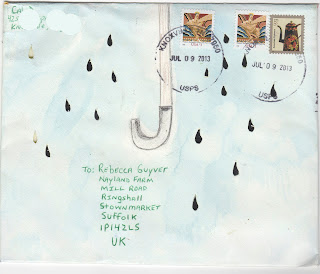 JUL 09 2013
USPS
JUL 09 2013
USPS
To: Rebecca Guyver
Nayland Farm
Mill Road
Ringshall
Stowmarket
Suffolk
IP142LS
UK